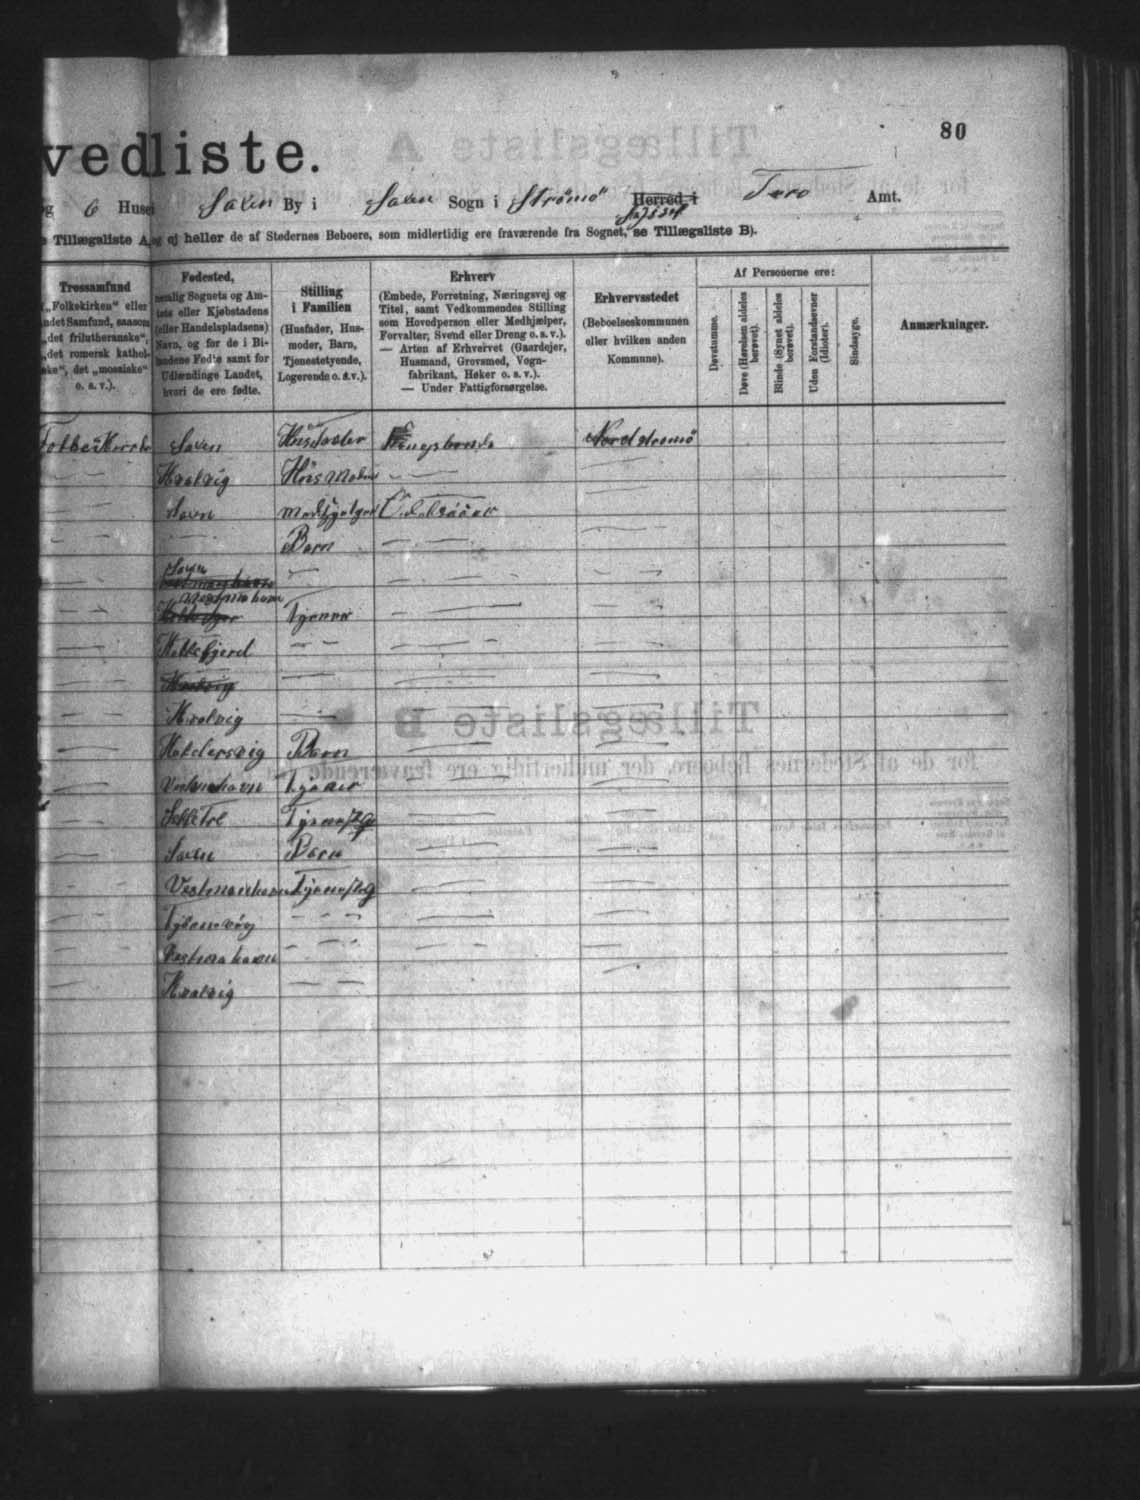 80
vedliste.
og 6 Huse i Saxen By i Saxen Sogn i Strømø Herred i Færo Amt.
Syssel
Tillægsliste A, og ej heller de af Stedernes Beboere, som midlertidig ere fraværende fra Sognet, se Tillægsliste B).
Trossamfund
(„Folkekirken“ eller
andet Samfund, saasom
„det frilutheranske“,
„det romersk kathol-
ske“, det „mosaiske“
o. s. v.).
Fødested,
nemlig Sognets og Am-
tets eller Kjøbstadens
(eller Handelspladsens)
Navn, og for de i Bi-
landene Fødte samt for
Udlændinge Landet,
hvori de ere fødte.
Stilling
i Familien
(Husfader, Hus-
moder, Barn,
Tjenestetyende,
Logerende o. s. v.).
Erhverv
(Embede, Forretning, Næringsvej og
Titel, samt Vedkommendes Stilling
som Hovedperson eller Medhjælper,
Forvalter, Svend eller Dreng o. s. v.).
— Arten af Erhvervet (Gaardejer,
Husmand, Grovsmed, Vogn-
fabrikant, Høker o. s. v.).
— Under Fattigforsørgelse.
Erhvervsstedet
(Beboelseskommunen
eller hvilken anden
Kommune).
Af Personerne ere:
Døvstumme.
Døve (Hørelsen aldeles
berøvet).
Blinde (Synet aldeles
berøvet).
Uden Forstandsevner
(Idioter).
Sindssyge.
Anmærkninger.
Saxen Husfader Kongsbonde Nordstrømø
Kvalvig Husmoder
Saxn
— Barn
Saxn
Vestmanhavn Tjener
Kollefjord
Kvalvig
Kvalvig
Haldersvig Barn
Vestmanhavn Tjener
Tjeneste
Saxn Barn
Vestmanhavn Tjeneste
Vestmanhavn
Kvalvig